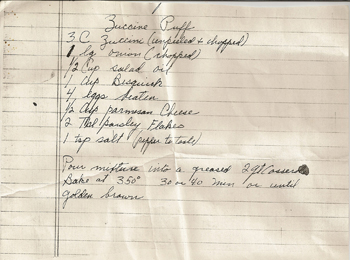 Zuccine Puff
3 C. Zuccini (unpeeled & chopped)
1 lg onion (chopped)
1/2 Cup salad oil
1 Cup Bisquick
4 eggs beaten
1/2 Cup parmesan Cheese
2 Tbl parsley Flakes
1 tsp salt (pepper to taste)
Pour mixture into a greased 2 qt Casserole
Bake at 350° 30 or 40 min or until
golden brown